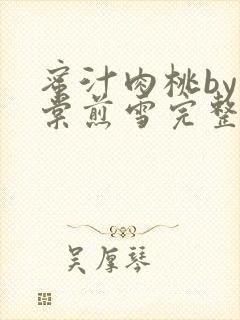 蜜汁肉桃by
棠煎雪完整
吴厚琴